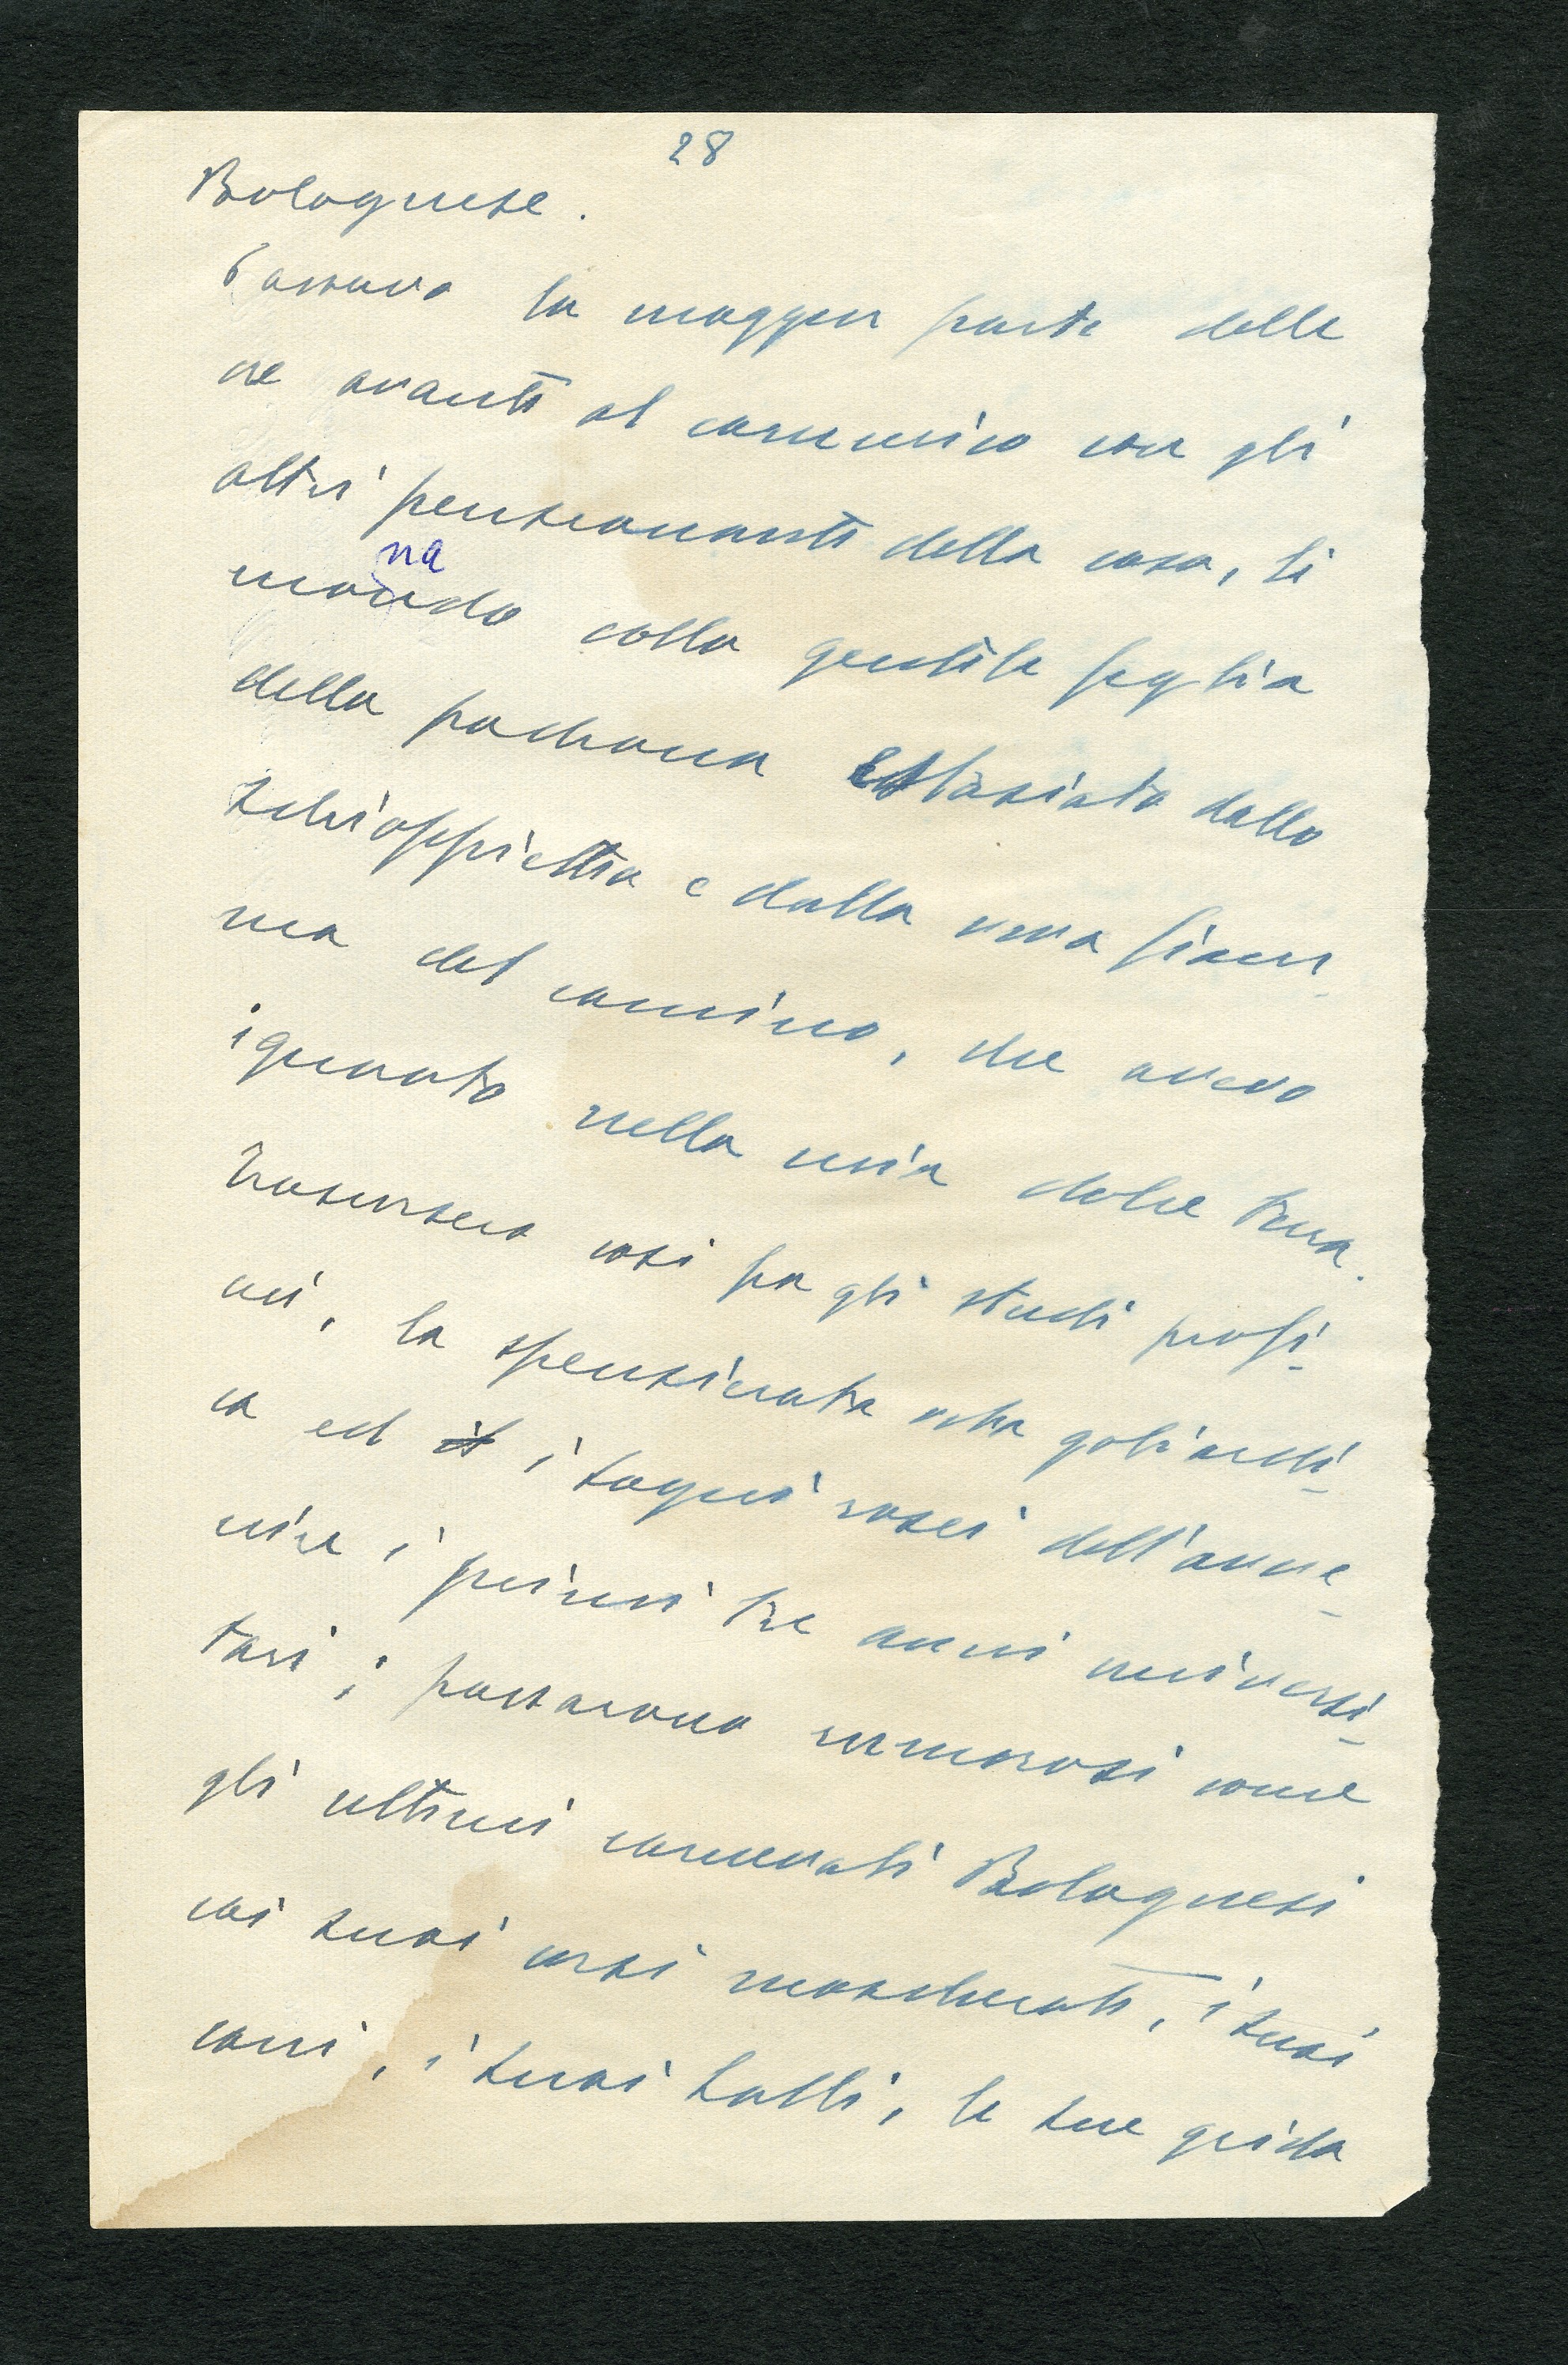 28
Bolognese.
Passavo la maggior parte delle
ore avanti al caminico con gli
altri pensionanti della casa, li
monando colla gentile figlia
della padrona Estasiato dallo
schioppiettia e dalla viva fiam-
ma del camino, che avevo
ignorato nella mia dolce terra.
Trascorsero così fra gli studi profi-
ui, la spensierata vita goliardi-
ca ed i sogni rosei dell'avve-
nire i primi tre anni universi-
tari; passarono rumorosi come
gli ultimi carnevali Bolognesi
coi suoi corsi mascherati, i suoi
carri, i suoi balli, le sue grida